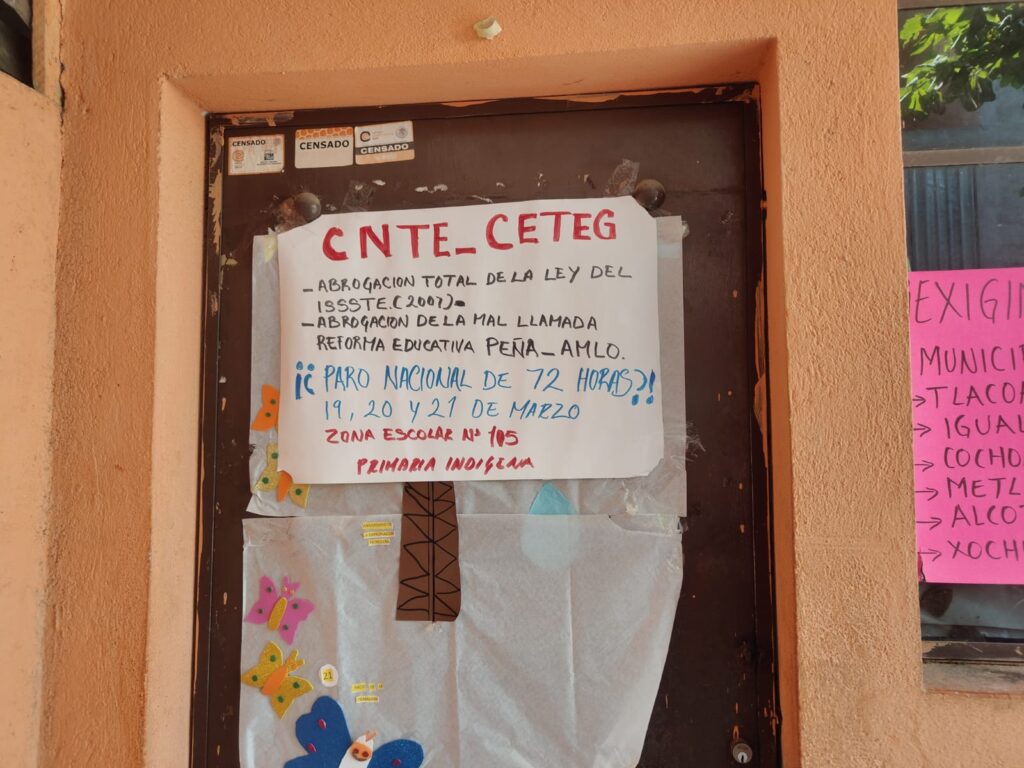 CENSADO
CENSADO
CENSADO
CNTE_CETEG
- ABROGACION TOTAL DE LA LEY DEL
ISSSTE.(2007)-
- ABROGACION DE LA MAL LLAMADA
REFORMA EDUCATIVA PEÑA_AMLO.
¡¿ PARO NACIONAL DE 72 HORAS?!
19, 20 Y 21 DE MARZO
ZONA ESCOLAR Nº 105
PRIMARIA INDIGENA
21
EXIGIM
MUNICIP
→TLACOA
→ IGUAL
→ COCHO
→ METL
→ ALCOZ
→ XOCHI